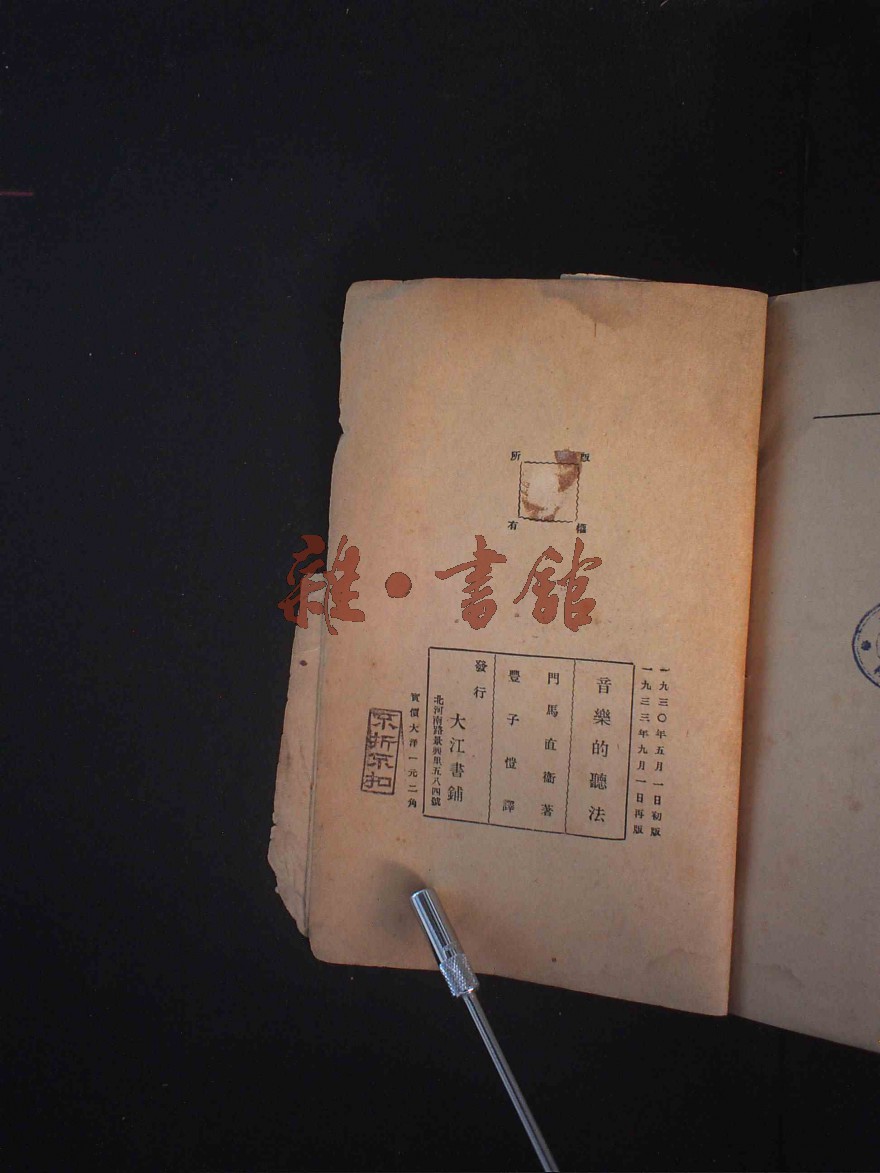 版權
所有
雜·書舘
一九三〇年五月一日初版
一九三三年九月一日再版
音樂的聽法
門馬直衞著
豐子愷譯
發行
大江書鋪
北河南路景興里五八四號
實價大洋一元二角
不折不扣